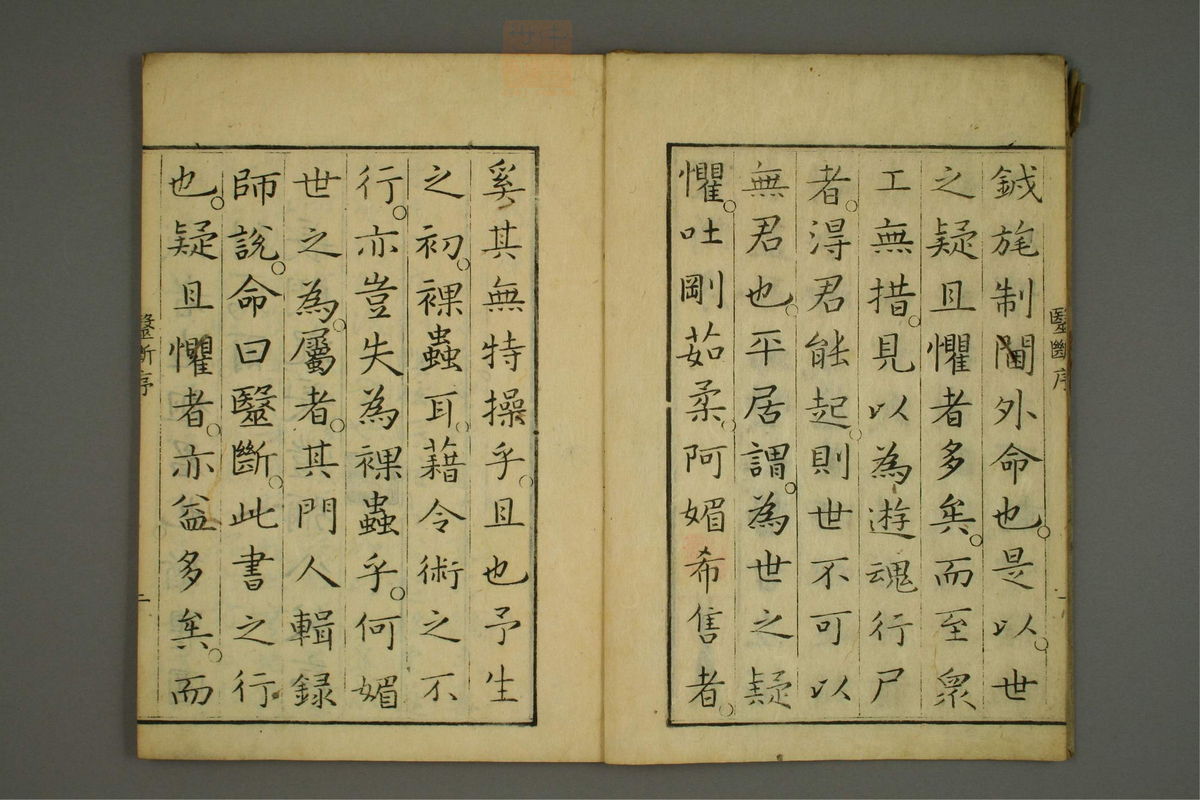 鉞旄制閫外命也。是以。世
之疑且懼者多矣。而至衆
工無措。見以為遊魂行尸
者。得君能起。則世不可以
無君也。平居謂。為世之疑
懼。吐剛茹柔。阿媚希售者。
醫斷序
奚其無特操乎。且也予生
之初。裸蟲耳。藉令術之不
行。亦豈失為裸蟲乎。何媚
世之為。屬者。其門人輯録
師說。命曰醫斷。此書之行
也。疑且懼者。亦益多矣。而
醫斷序